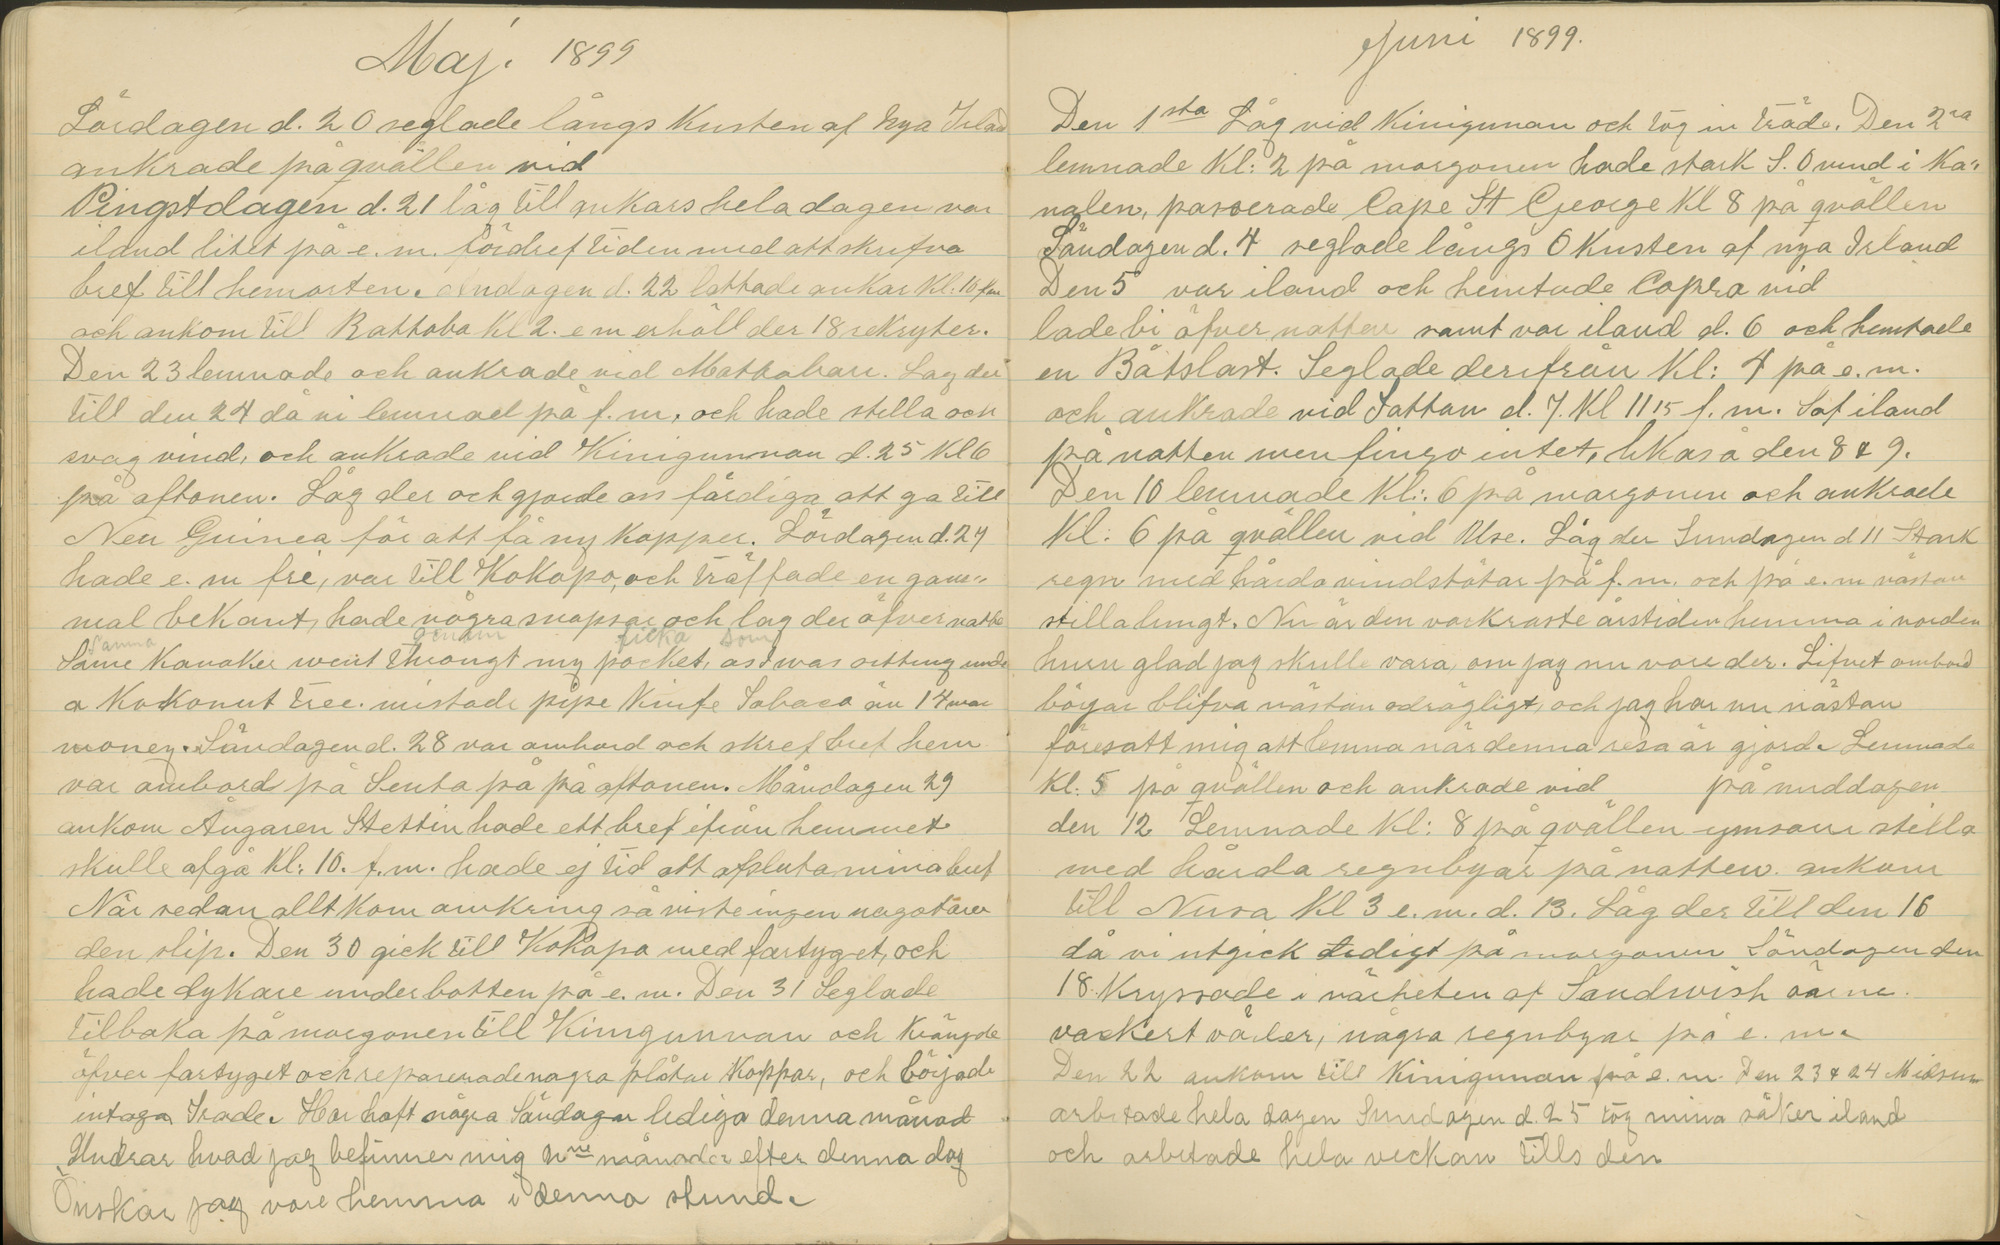 Maj. 1899
Lördagen d. 20 seglade långs Kusten af Nya Irland
ankrade på qvällen vid
Pingstdagen d. 21 låg till ankars hela dagen var
iland litet på e. m. fördref tiden med att skrifva
bref till hemorten. Andagen d. 22 lattade ankar Kl: 10 f.m
och ankom till Rattaba Kl 2. e m erhöll der 18 rekryter.
Den 23 lemnade och ankrade vid Matkaban. Lag der
till den 24 då vi lemnad på f. m, och hade stilla och
svag vind, och ankrade vid Kinigunnan d. 25 Kl 6
på aftonen. Låg der och gjorde oss färdiga att ga till
Neu Guinea för att få ny kopper. Lördagen d. 27
hade e. m fri, var till Kokopo, och träffade en gam=
mal bekant, hade några snapsar och lag der öfver natte
Samma genom ficka som
Same Kanaker went througt my pocket, as I was sitting unde
a Kokonut tree. mistade pipe Knife Tobaco än 14 mar
money. Söndagen d. 28 var ombord och skref bref hem
var ombord på Senta på på aftonen. Måndagen 29
ankom Ångaren Stettin hade ett bref ifrån hemmet
skulle afgå Kl: 10. f. m. hade ej tid att afsluta mina bref
När sedan allt kom omkring så viste ingen nagot öfver
den slip. Den 30 gick till Kokopo med fartyget, och
hade dykare under botten på e. m. Den 31 Seglade
tilbaka på morgonen till Kinigunnan och Krängde
öfver fartyget och reparerade nagra plåtar Koppar, och började
intaga Trade. Har haft några Söndagar lediga denna månad
Undrar hvad jag befinner mig månader efter denna dag
Önskar jag vore hemma i denna stund.
Juni 1899.
Den 1sta Låg vid Kinigunan och tog in träde. Den 2ra
lemnade Kl: 2 på morgonen hade stark S. O vind i Ka=
nalen, passerade Cape St George Kl 8 på qvällen
Söndagen d. 4 seglade långs O Kusten af nya Irland
Den 5 var iland och hemtade Copra vid
lade bi öfver natten samt var iland d. 6 och hemtade
en Båtslast. Seglade derifrån Kl: 4 på e. m.
och ankrade vid Sattan d. 7. Kl 11 15 f. m. Sof iland
på natten men fingo intet, likaså den 8 & 9.
Den 10 lemnade Kl: 6 på morgonen och ankrade
Kl: 6 på qvällen vid Use. Låg der Sundagen d 11 Stark
regn med hårda vindstötar på f. m. och på e. m nästan
stilla lungt. Nu är den vackraste årstiden hemma i norden
huru glad jag skulle vara, om jag nu vore der. Lifvet ombord
börjar blifva nästan odrägligt, och jag har nu nästan
föresatt mig att lemna när denna resa är gjord. Lemnade
Kl. 5 på qvällen och ankrade vid på middagen
den 12 Lemnade Kl: 8 på qvällen ymsom stilla
med hårda regnbyar på natten. ankom
till Nusa Kl 3 e. m. d. 13. Låg der till den 16
då vi utgick tidigt på morgonen Söndagen den
18. Kryssade i närheten af Sandwish öarne.
vackert väder, några regnbyar på e. m.
Den 22 ankom till Kinigunan på e. m. Den 23 & 24 Midsum
arbetade hela dagen Sundagen d. 25 tog mina säker iland
och arbetade hela veckan tills den